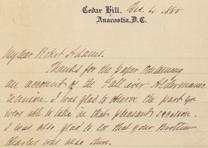 Cedar Hill,
Anacostia, D.C. Dec. 4. 188
My dear Robert Adams.
Thanks for the paper containing
an account of the Fall River Alderman
reunion. I was glad to observe the part you
were able to take in that pleasant occasion
I was also glad to see that your brother
Charles was also there.